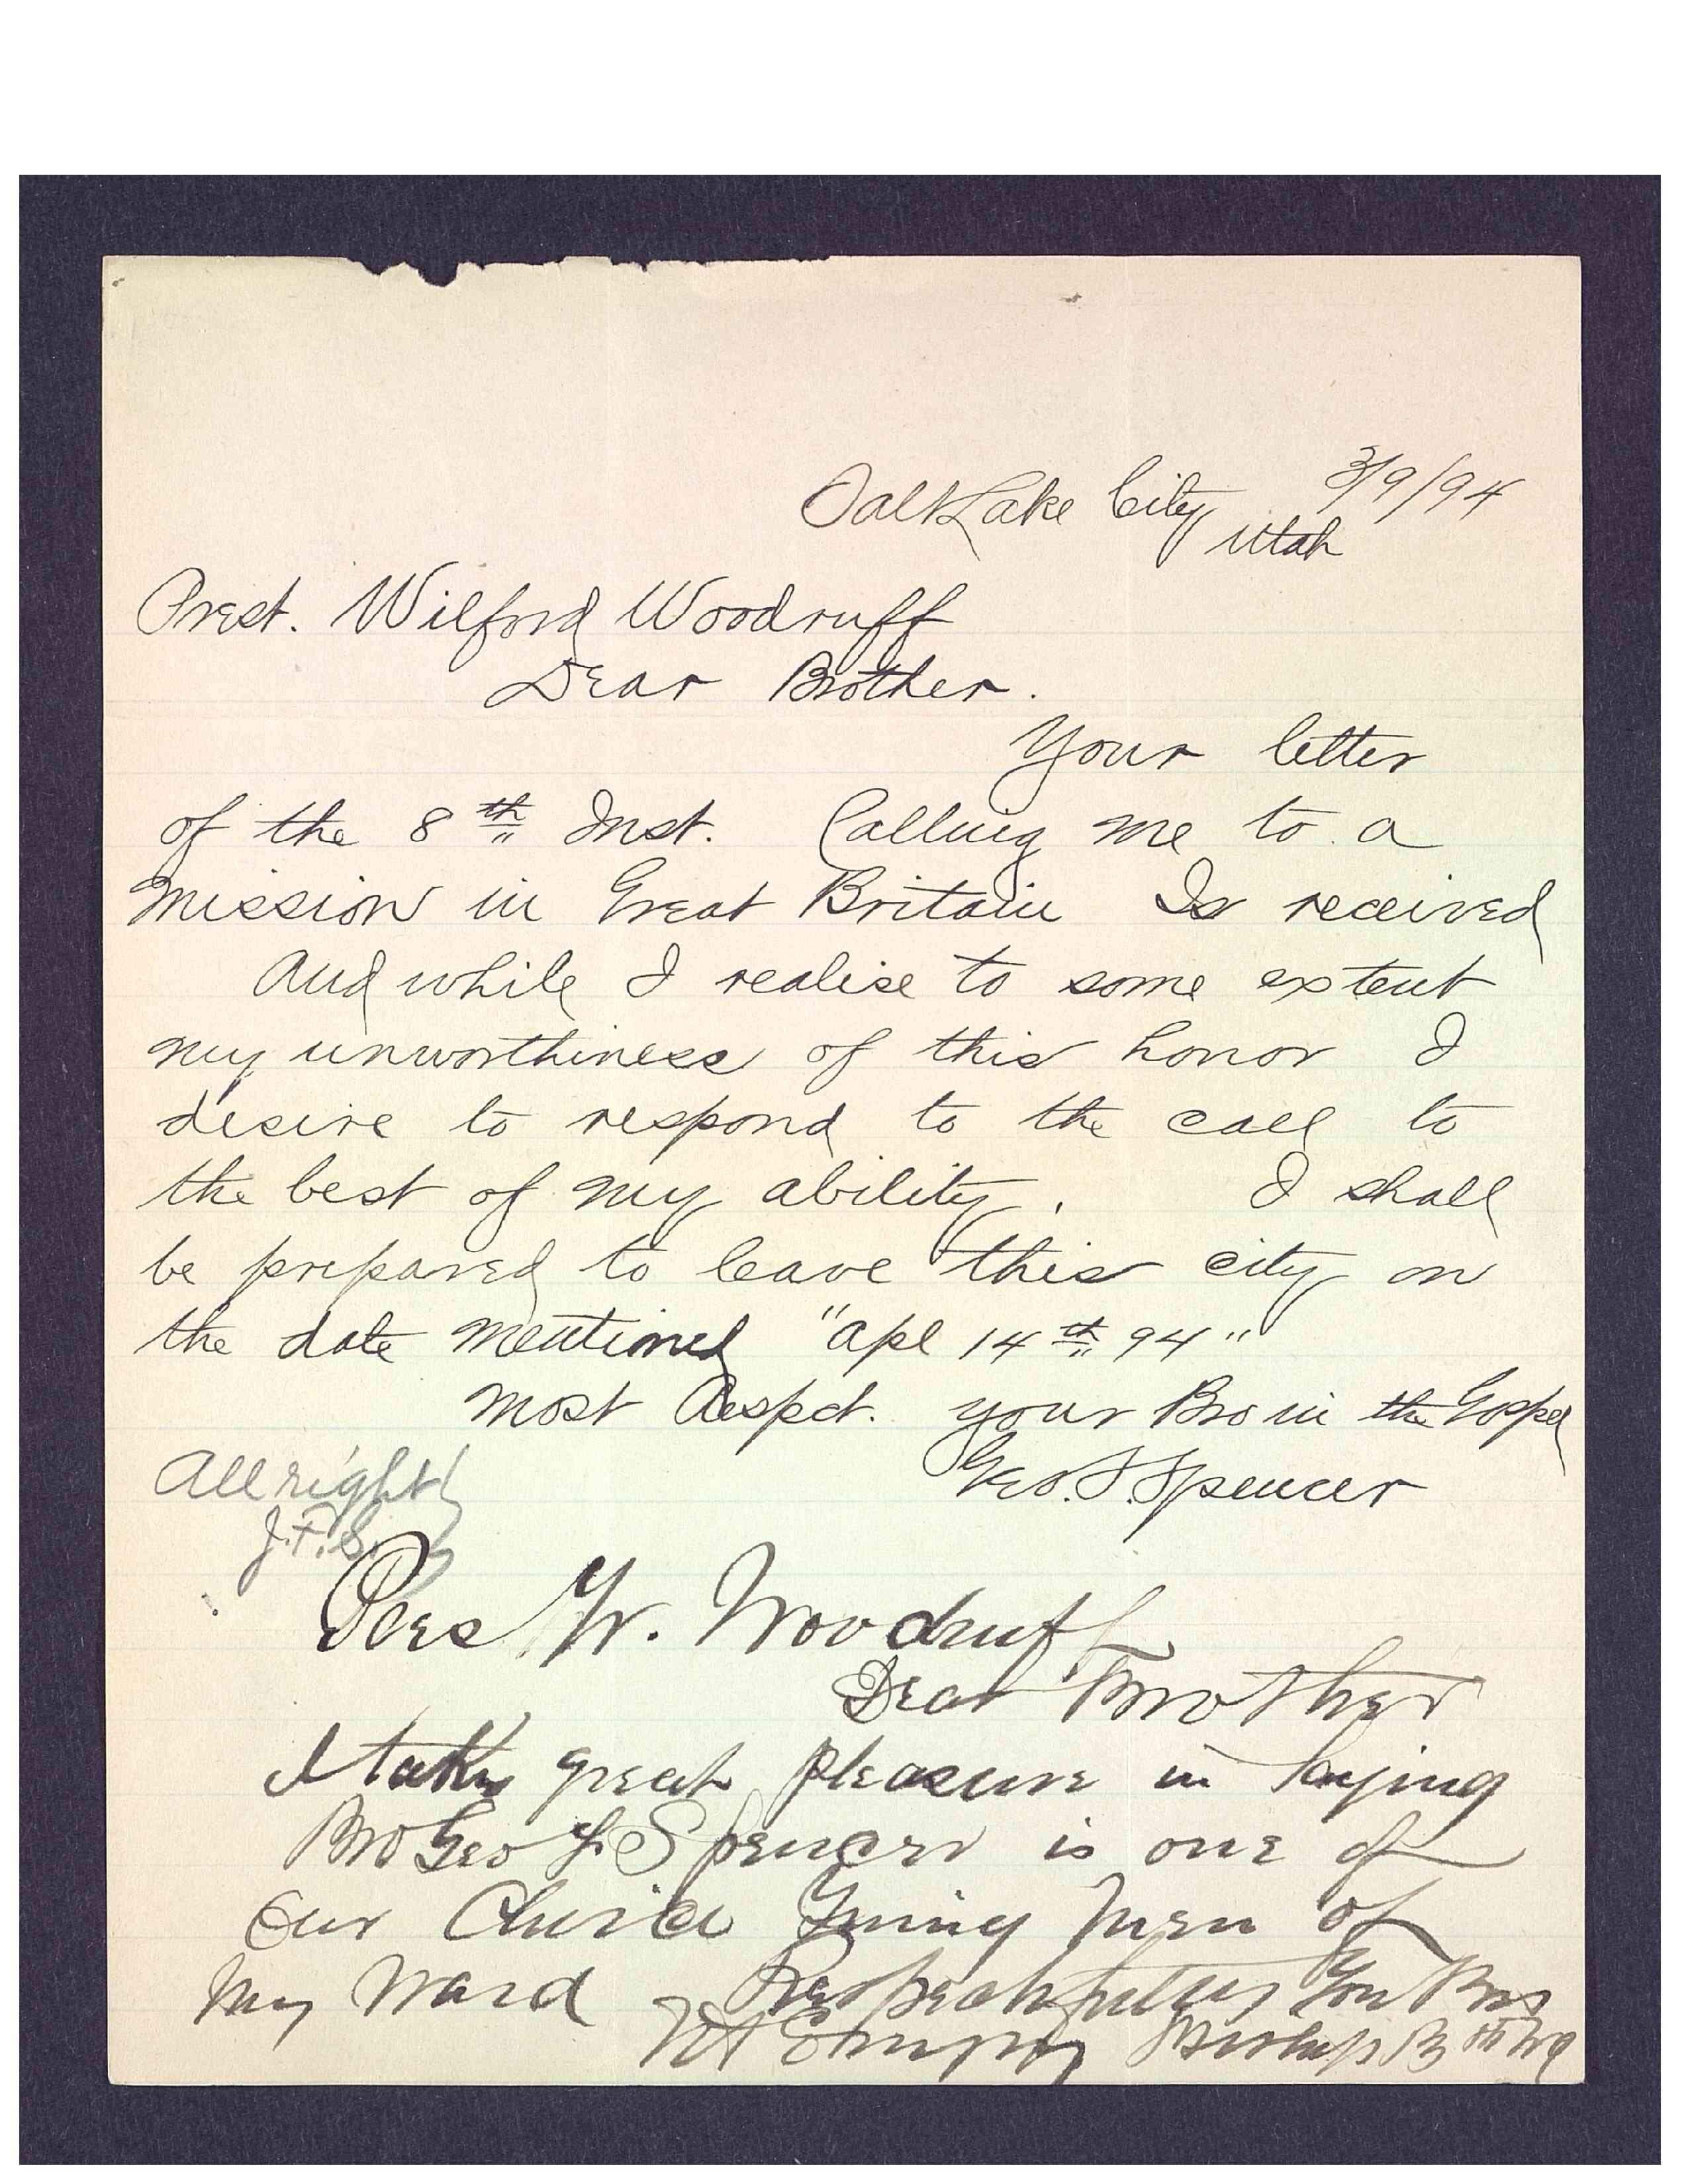 Salt Lake City 3/9/94
Utah
Prest. Wilford Woodruff
Dear Brother.
Your letter
of the 8th Inst. Calling me to a
Mission in Great Britain Is received
And while I realise to some extent
my unworthiness of this honor I
desire to respond to the call to
the best of my ability. I shall
be prepared to leave this city on
the date mentioned "Apl 14th 94"
Most Respct. your Bro in the Gospel
Geo. S. Spencer
All right
J.F.S.
Pres W. Woodruff
Dear Brother
I take great pleasure in saying
Bro Geo S Spencer is one of
Our Choice Young Men of
My Ward Respectfully You Bro
Bishop